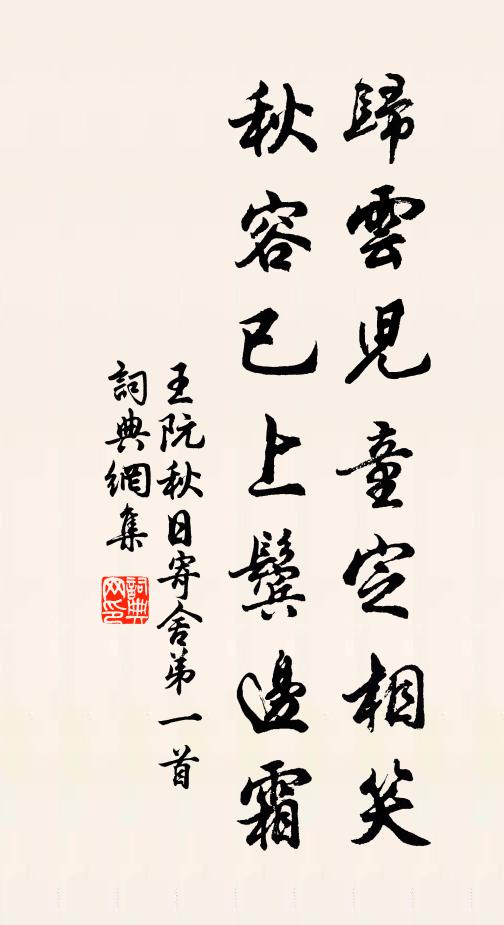 歸雲兒童定相笑
秋容已上鬢邊霜
王阮秋日寄舍弟一首
詞典網集
詞典網印